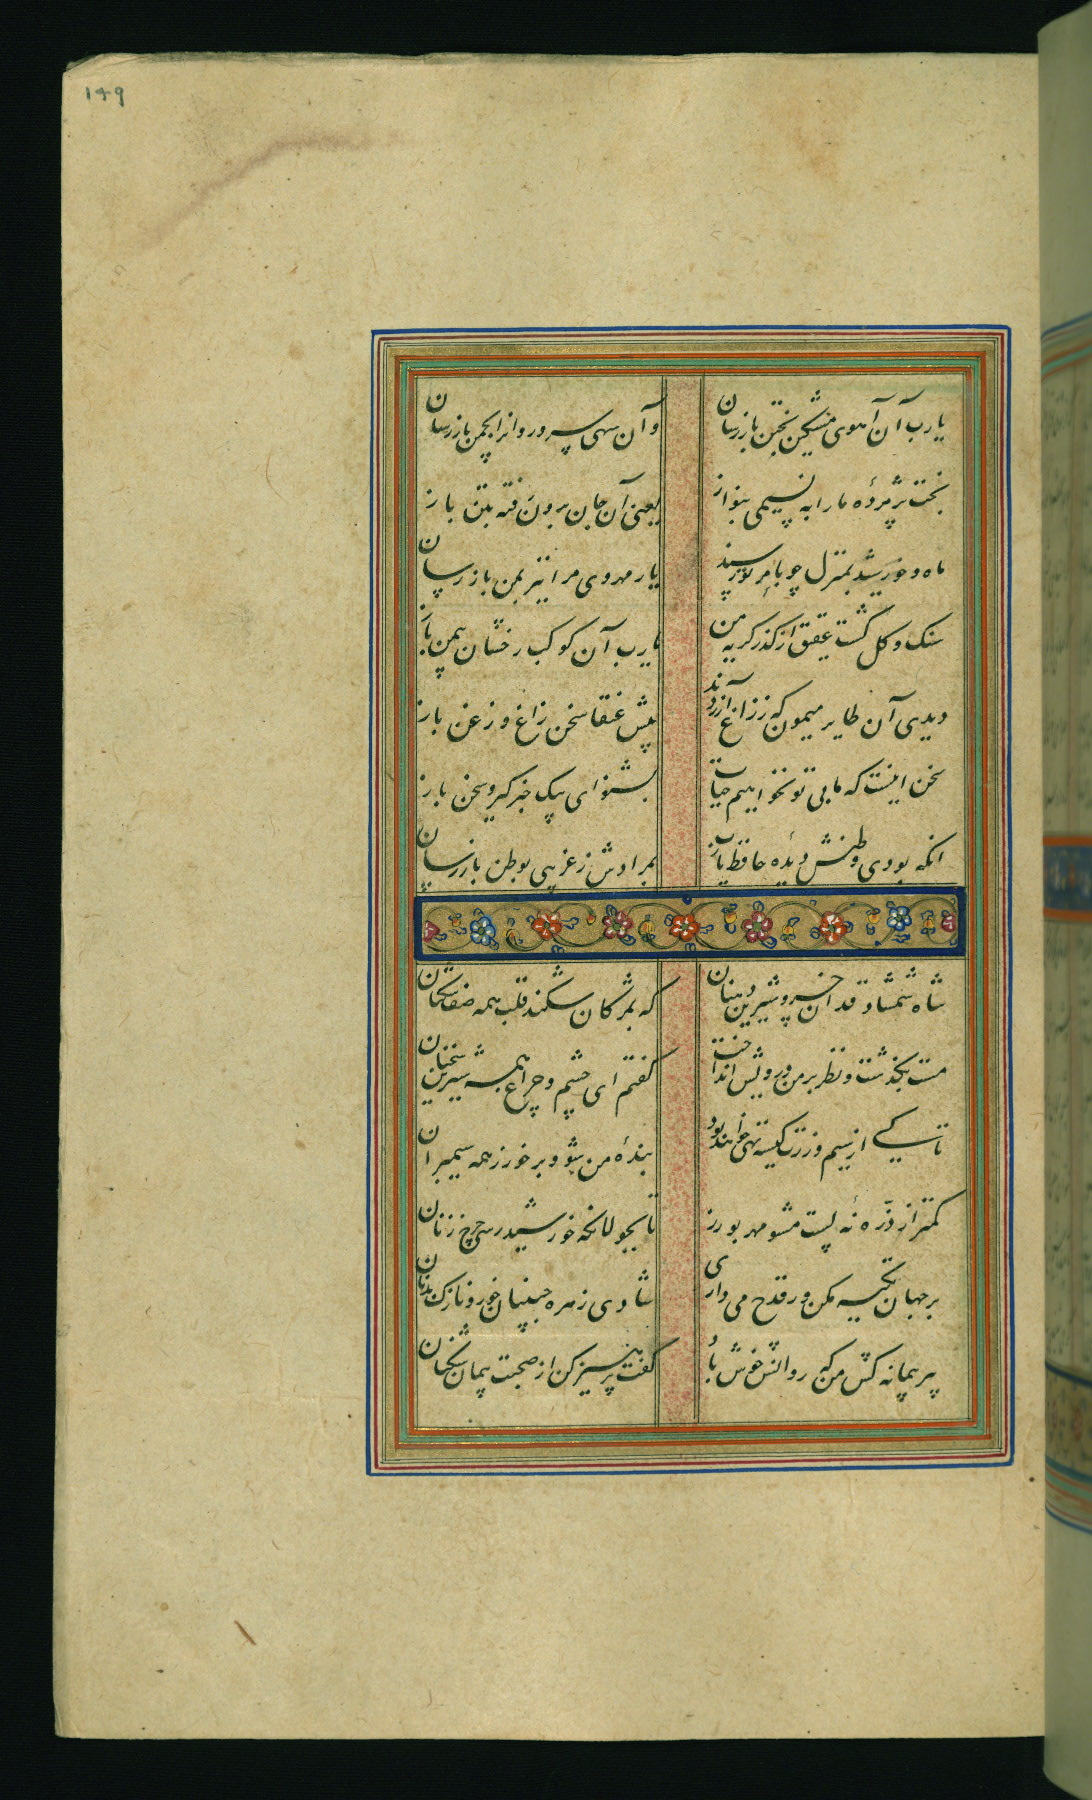 ۱۴۹
یارب آن آهوی مشکین بختن باز رسان
وآن سهی سرو روانرا بچمن باز رسان
بخت پژمردهٔ ما را به نسیمی بنواز
یعنی آن جان برون رفته بتن باز
ماه و خورشید بمنزل چو بامر تو رسند
یار مهروی مرا نیز بمن باز رسان
سنک و کل کشت عقیق از کذر کریه من
یارب آن کوکب رخشان بیمن باز
دیدی آن طایر میمون که ز زاغ آزردند
پیش عنقا سخن زاغ و زغن باز
سخن اینست که ما بی تو نخواهیم حیات
بشنو ای پیک خبرکیر و سخن باز
انکه بودی وطنش دیدهٔ حافظ یارب
بمرادش ز غریبی بوطن باز رسان
شاه شمشاد قدان خسرو شیرین دهنان
که بمژکان شکند قلب همه صف شکنان
مست بکذشت و نظر بر من درویش انداخت
کفتم ای چشم و چراغ همه شیرین سخنان
تا کی از سیم و زرت کیسه تهی خواهد بود
بندهٔ من شو و برخور ز همه سیمبران
کمتر از ذره نهٔ پست مشو مهر بورز
تا بجولانکه خورشید رسی چرخ زنان
بر جهان تکیه مکن ور قدح می داری
شادی زهره جبینان خور و نازک بدنان
پیر پیمانه کش من که روانش خوش باد
کفت پرهیز کن از صحبت پیمان شکنان